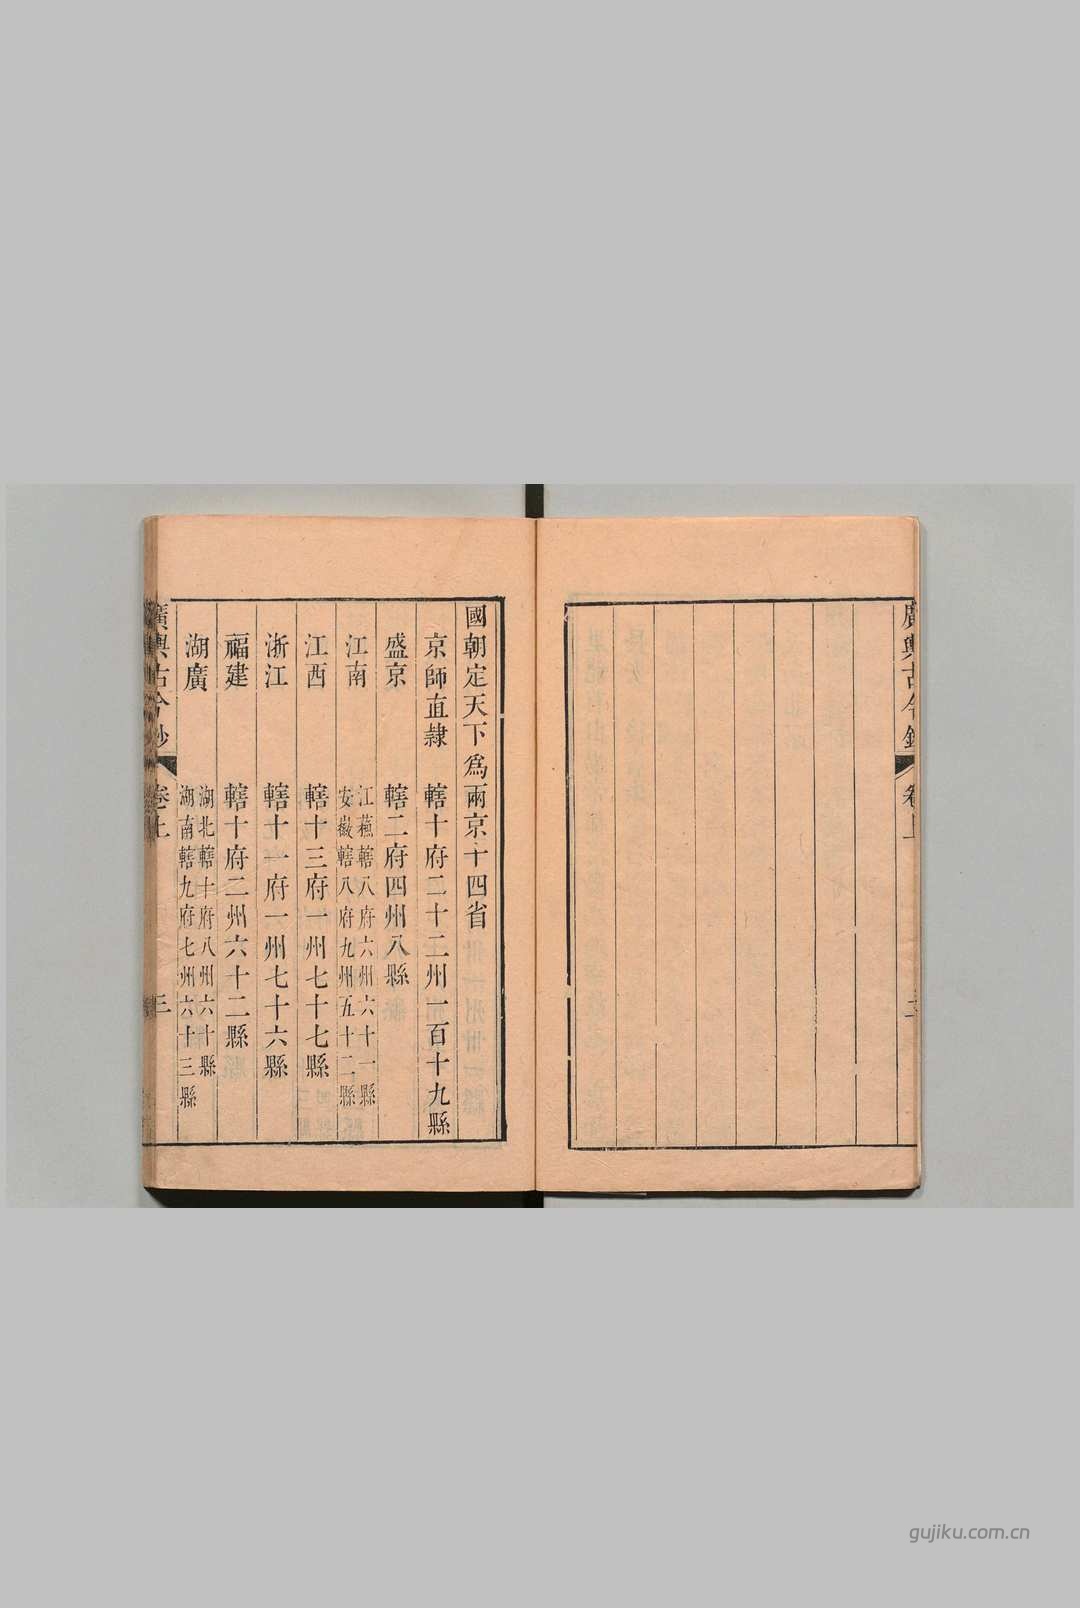 國朝定天下爲兩京十四省
京師直隸 轄十府二十二州一百十九縣
盛京 轄二府四州八縣
江南 江蘇轄八府六州六十一縣
安徽轄八府九州五十二縣
江西 轄十三府一州七十七縣
浙江 轄十一府一州七十六縣
福建 轄十府二州六十二縣
湖廣 湖北轄十府八州六十縣
湖南轄九府七州六十三縣
廣輿古今鈔 卷上 三
廣輿古今鈔 卷上
gujiku.com.cn